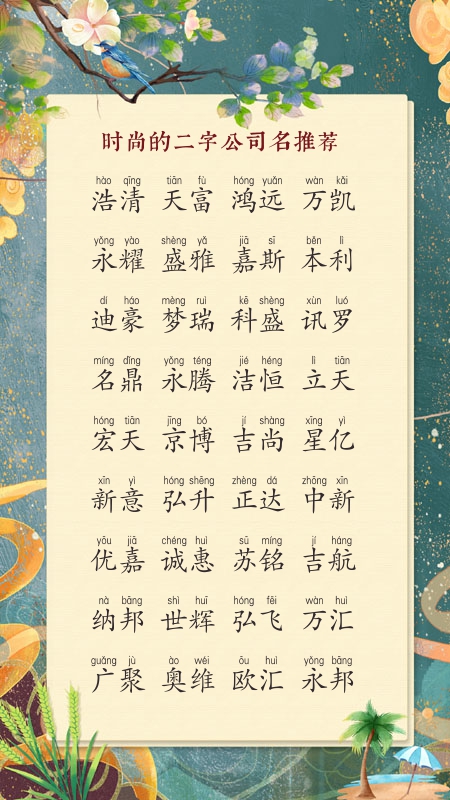 时尚的二字公司名推荐
hào qīng tiān fù hóng yuǎn wàn kǎi
浩清 天富 鸿远 万凯
yǒng yào shèng yǎ jiā sī běn lì
永耀 盛雅 嘉斯 本利
dí háo mèng ruì kē shèng xùn luó
迪豪 梦瑞 科盛 讯罗
míng dǐng yǒng téng jié héng lì tiān
名鼎 永腾 洁恒 立天
hóng tiān jīng bó jí shàng xīng yì
宏天 京博 吉尚 星亿
xīn yì hóng shēng zhèng dá zhōng xīn
新意 弘升 正达 中新
yōu jiā chéng huì sū míng jí háng
优嘉 诚惠 苏铭 吉航
nà bāng shì huī hóng fēi wàn huì
纳邦 世辉 弘飞 万汇
guǎng jù ào wéi ōu huì yǒng bāng
广聚 奥维 欧汇 永邦